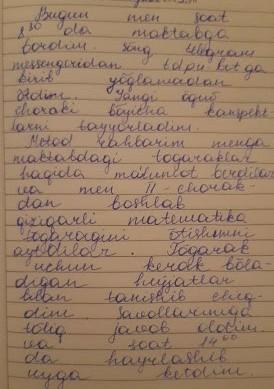 Bugun men soat
8 30 da maktabga
bordim. Song telegram
messengeridan tdpu bot ga
kirib yoglamadan
otdim. Yangi oquv
choraki boyicha konspekt-
larni tayyorladim.
Metod rahbarim menga
maktabdagi togaraklar
haqida malumot berdilar
va men II-chorak-
dan boshlab
qiziqarli matematika
togaragini otishimni
aytdilar. Togarak
uchun kerak bola-
digan hujjatlar
bilan tanishib chiq-
dim savollarimga
toliq javob oldim.
va soat 14 00
da hayrlashib
uyga ketdim.